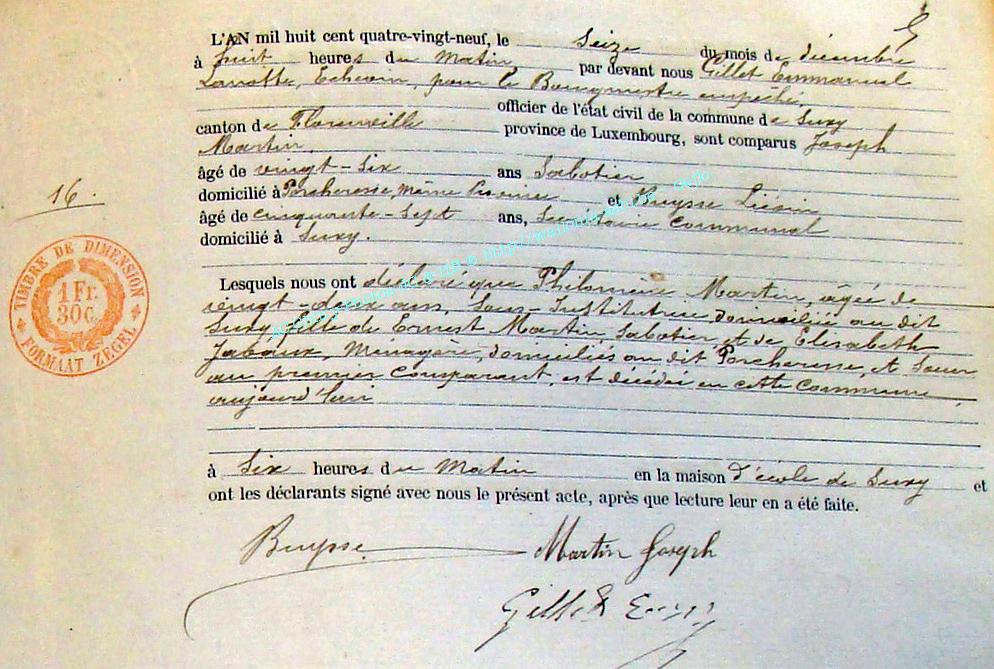 L'AN mil huit cent quatre-vingt-neuf, le Seize du mois de décembre
à huit heures du Matin, par devant nous Gillet Emmanuel
Lanotte, Echevin, pour le Bourgmestre empêché,
officier de l'état civil de la commune de Suxy
canton de Florenville province de Luxembourg, sont comparus Joseph
Martin,
âgé de vingt-Six ans Sabotier
domicilié à Porcheresse, même Province et Buysse Liévin
âgé de Cinquante-Sept ans, Secrétaire Communal
domicilié à Suxy.
16.
TIMBRE DE DIMENSION
1 Fr.
30 c.
FORMAAT ZEGEL
Lesquels nous ont déclaré que Philomène Martin, âgée de
vingt-deux ans, Sous-Institutrice, domiciliée au dit
Suxy fille de Ernest Martin, Sabotier, et de Elisabeth
Ménagère, domiciliés au dit Porcheresse, et Soeur
au premier Comparant, est décédée en cette Commune,
aujourd'hui
à Six heures du Matin en la maison d'école de Suxy et
ont les déclarants signé avec nous le présent acte, après que lecture leur en a été faite.
Buysse Martin Joseph
Gillet